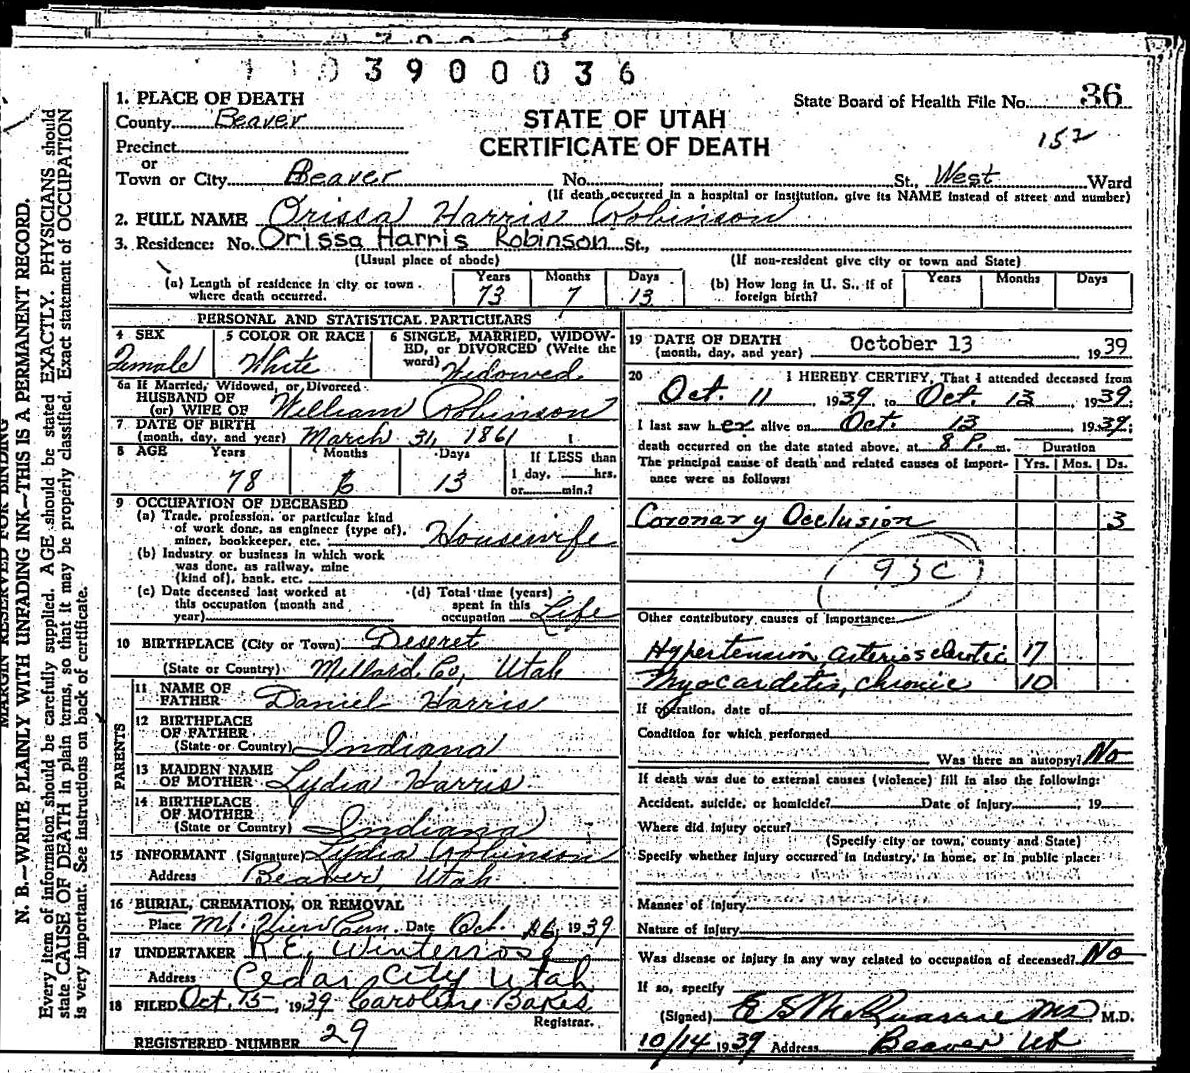 1 1 0 3 9 0 0 0 3 6
1. PLACE OF DEATH
County Beaver
Precinct
or
Town or City Beaver No. St., West Ward
(If death occurred in a hospital or institution, give its NAME instead of street and number)
State Board of Health File No. 36
152
STATE OF UTAH
CERTIFICATE OF DEATH
2. FULL NAME Orissa Harris Robinson
3. Residence: No. Orissa Harris Robinson St.,
(Usual place of abode) (If non-resident give city or town and State)
(a) Length of residence in city or town where death occurred. Years 73 Months 7 Days 13
(b) How long in U. S., if of foreign birth? Years Months Days
PERSONAL AND STATISTICAL PARTICULARS
4 SEX Female
5 COLOR OR RACE White
6 SINGLE, MARRIED, WIDOWED, or DIVORCED (Write the word) Widowed
6a If Married, Widowed, or Divorced
HUSBAND OF
(or) WIFE OF William Robinson
7 DATE OF BIRTH
(month, day, and year) March 31, 1861
8 AGE Years 78 Months 6 Days 13
If LESS than
1 day, hrs.
or min.?
9 OCCUPATION OF DECEASED
(a) Trade, profession, or particular kind
of work done, as engineer (type of),
miner, bookkeeper, etc. Housewife
(b) Industry or business in which work
was done, as railway, mine
(kind of), bank, etc.
(c) Date deceased last worked at
this occupation (month and
year)
(d) Total time (years)
spent in this
occupation Life
10 BIRTHPLACE (City or Town) Deseret
(State or Country) Millard Co, Utah
PARENTS
11 NAME OF
FATHER Daniel Harris
12 BIRTHPLACE
OF FATHER
(State or Country) Indiana
13 MAIDEN NAME
OF MOTHER Lydia Harris
14 BIRTHPLACE
OF MOTHER
(State or Country) Indiana
15 INFORMANT (Signature) Lydia Robinson
Address Beaver, Utah
16 BURIAL, CREMATION, OR REMOVAL
Place Mt. View Cem. Date Oct. 1939
17 UNDERTAKER R E Winterrose
Address Cedar City Utah
18 FILED Oct. 15, 1939 Caroline Bakes
Registrar.
REGISTERED NUMBER 29
19 DATE OF DEATH
(month, day, and year) October 13 1939
20 I HEREBY CERTIFY, That I attended deceased from
Oct. 11 1939, to Oct. 13, 1939
I last saw her alive on Oct. 13 1939;
death occurred on the date stated above, at 8 P. m.
The principal cause of death and related causes of importance were as follows:
Duration
Yrs. Mos. Ds.
Coronary Occlusion 3
93C
Other contributory causes of importance:
Hypertension, arteriosclerotic 17
Myocarditis, chronic 10
If operation, date of
Condition for which performed
Was there an autopsy? No
If death was due to external causes (violence) fill in also the following:
Accident, suicide, or homicide? Date of Injury , 19
Where did injury occur?
(Specify city or town, county and State)
Specify whether injury occurred in industry, in home, or in public place:
Manner of injury
Nature of Injury
Was disease or injury in any way related to occupation of deceased? No
If so, specify
(Signed) E S McQuarrie MD M.D.
10/14 1939 Address Beaver Ut
MARGIN RESERVED FOR BINDING
N. B.—WRITE PLAINLY WITH UNFADING INK—THIS IS A PERMANENT RECORD.
Every item of information should be carefully supplied. AGE should be stated EXACTLY. PHYSICIANS should
state CAUSE OF DEATH in plain terms, so that it may be properly classified. Exact statement of OCCUPATION
is very important. See instructions on back of certificate.